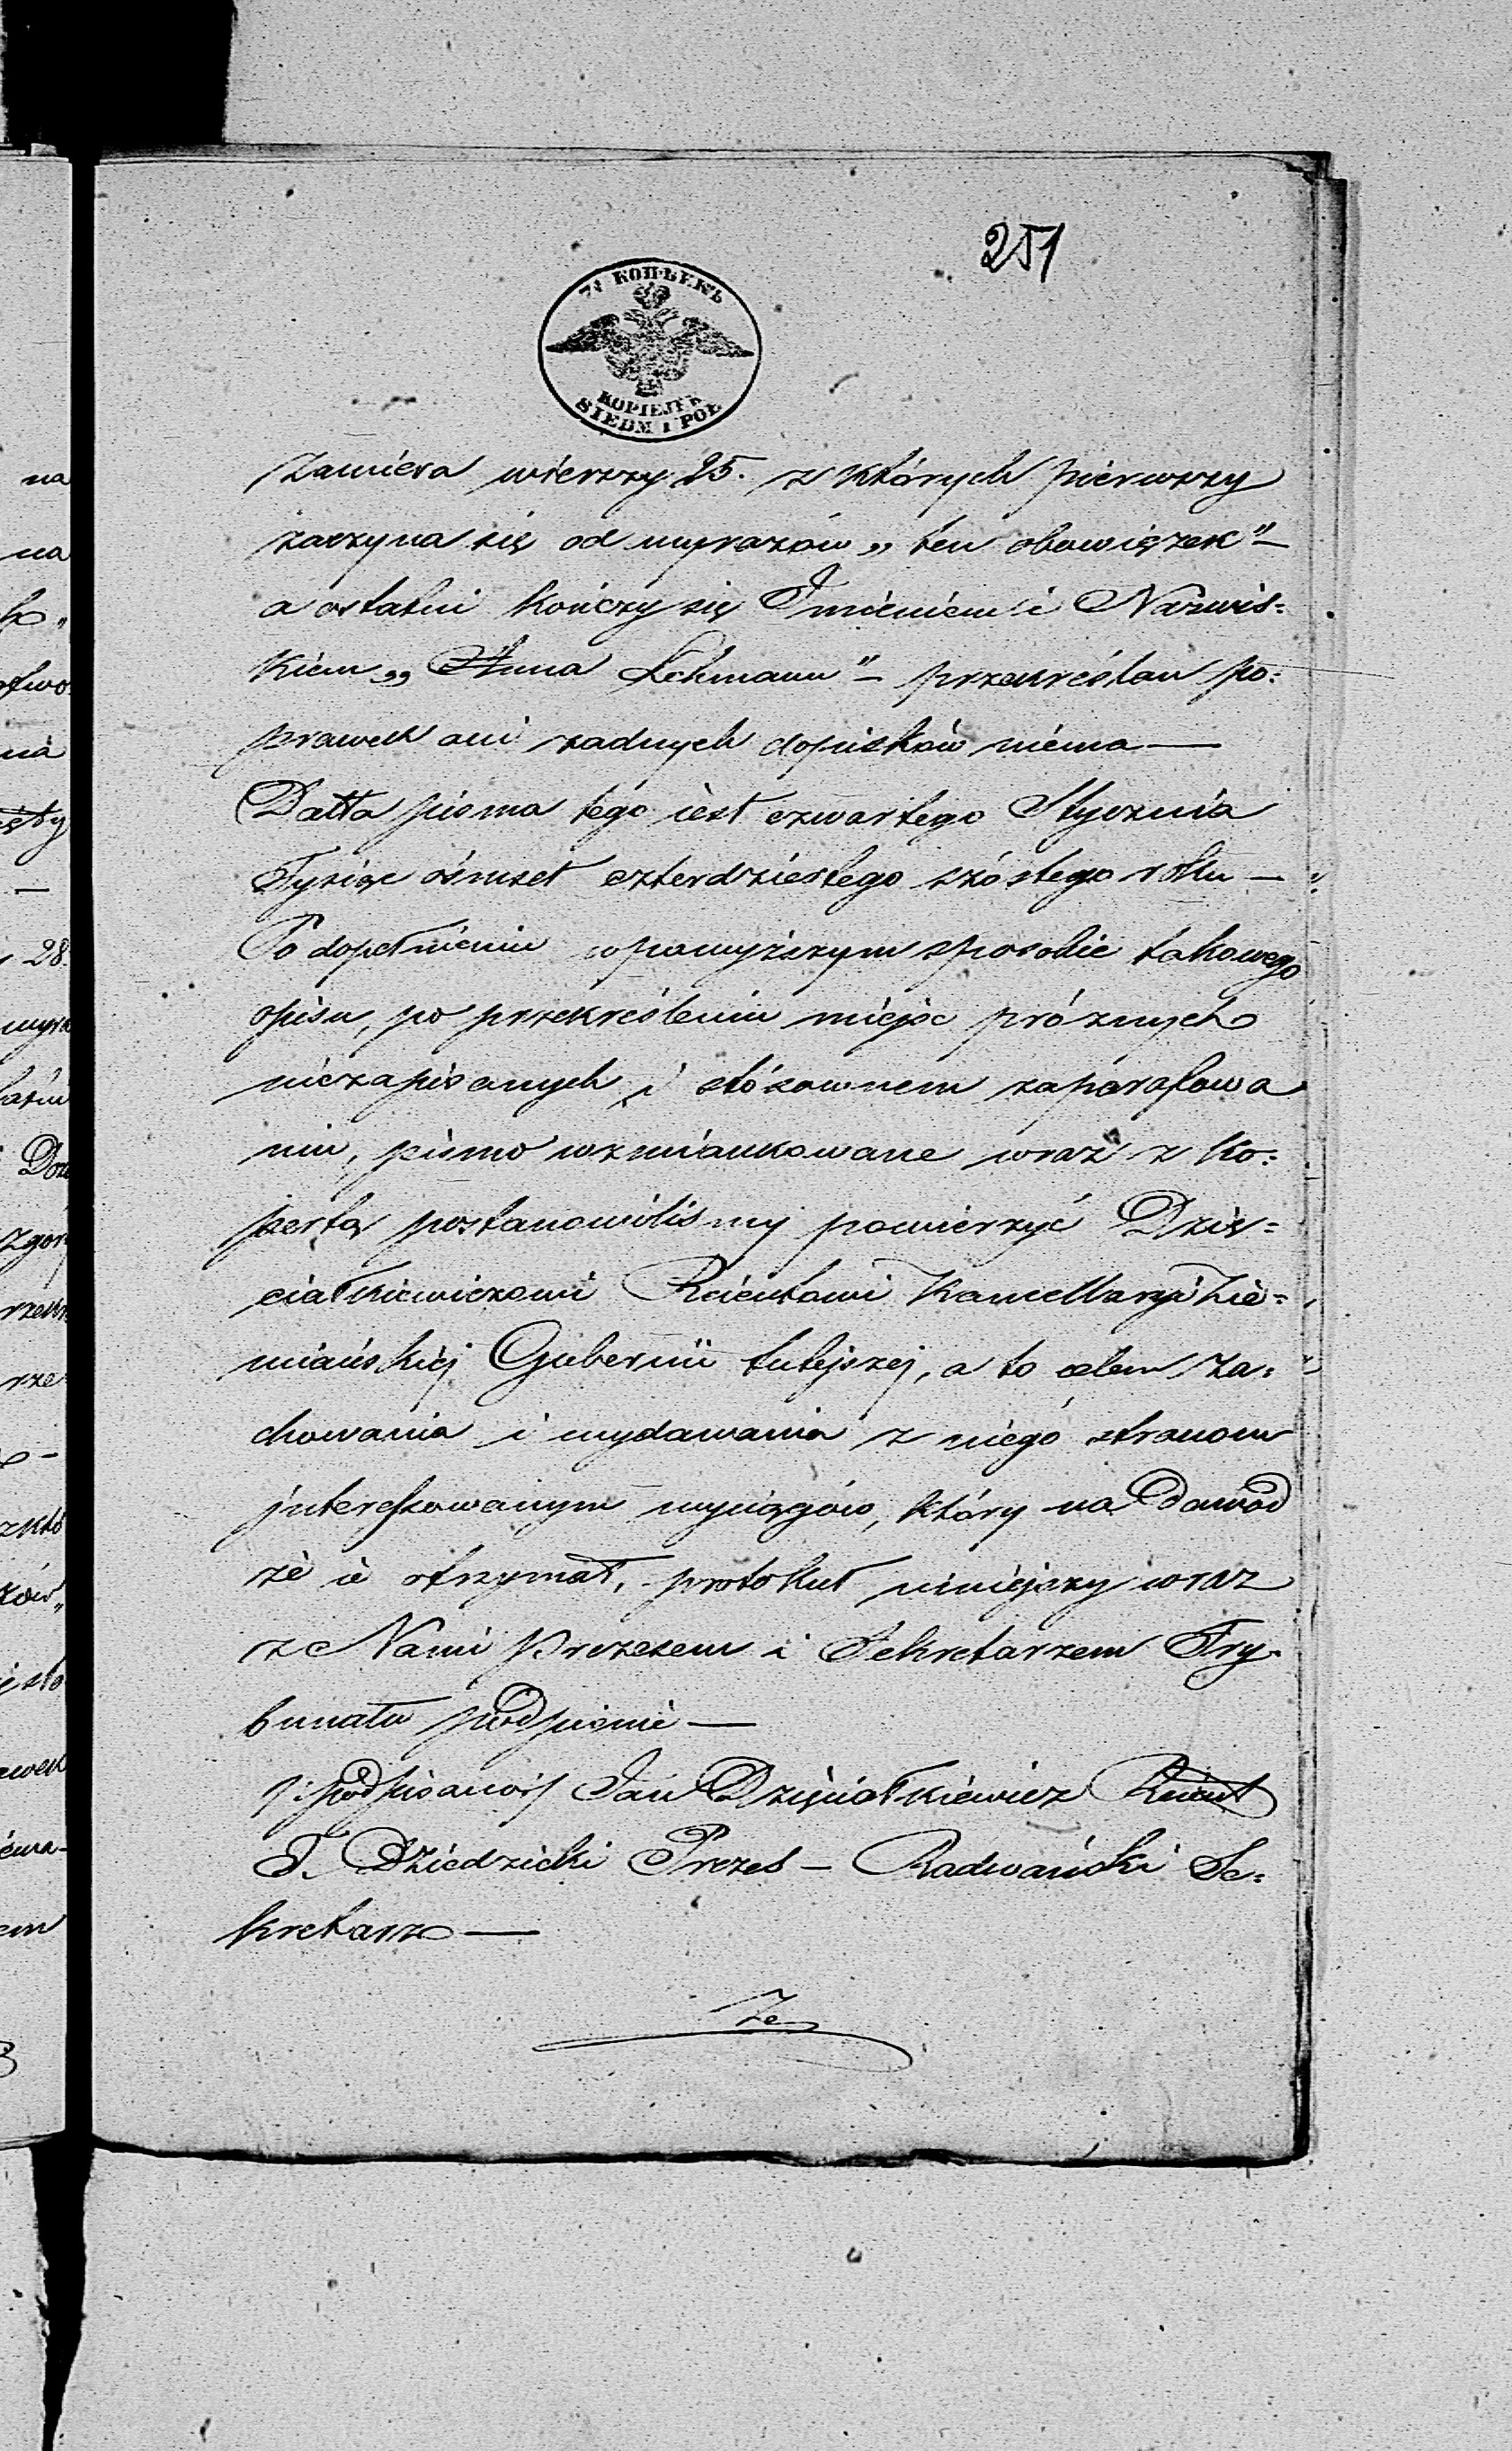 251
7½ КОПѢЕКЪ
KOPIEJEK
SIEDM I POŁ
Zawiera wierszy 25. z których pierwszy
zaczyna się od wyrazów „ ten obowiązek" —
a ostatni kończy się Imieniem i Nazwis=
kiem „ Anna Lehmann" — przekreślań po=
prawek ani żadnych dopisków niema —
Datta pisma tego iest czwartego Stycznia
Tysiąc ósmset czterdziestego szóstego roku —
Po dopełnieniu w powyższym sposobie takowego
opisu, po przekreśleniu miejsc próżnych
niezapisanych i stósownem zaparafowa
niu, pismo wzmiankowane wraz z ko=
pertą postanowiliśmy powierzyć Dzię=
ciałkiewiczowi Reientowi Kancellaryi Zie=
miańskiej Gubernii tutejszej, a to celem za=
chowania i wydawania z niego stronom
interessowanym wyciągów, który na Dowód
że ie otrzymał, protokuł niniejszy wraz
z Nami Prezesem i Sekretarzem Try=
bunału podpisuie —
/: podpisano :/ Jan Dzięciałkiewicz Reient
T. Dziedzicki Prezes — Radwański Se=
kretarz —
Ze
na
na
28.